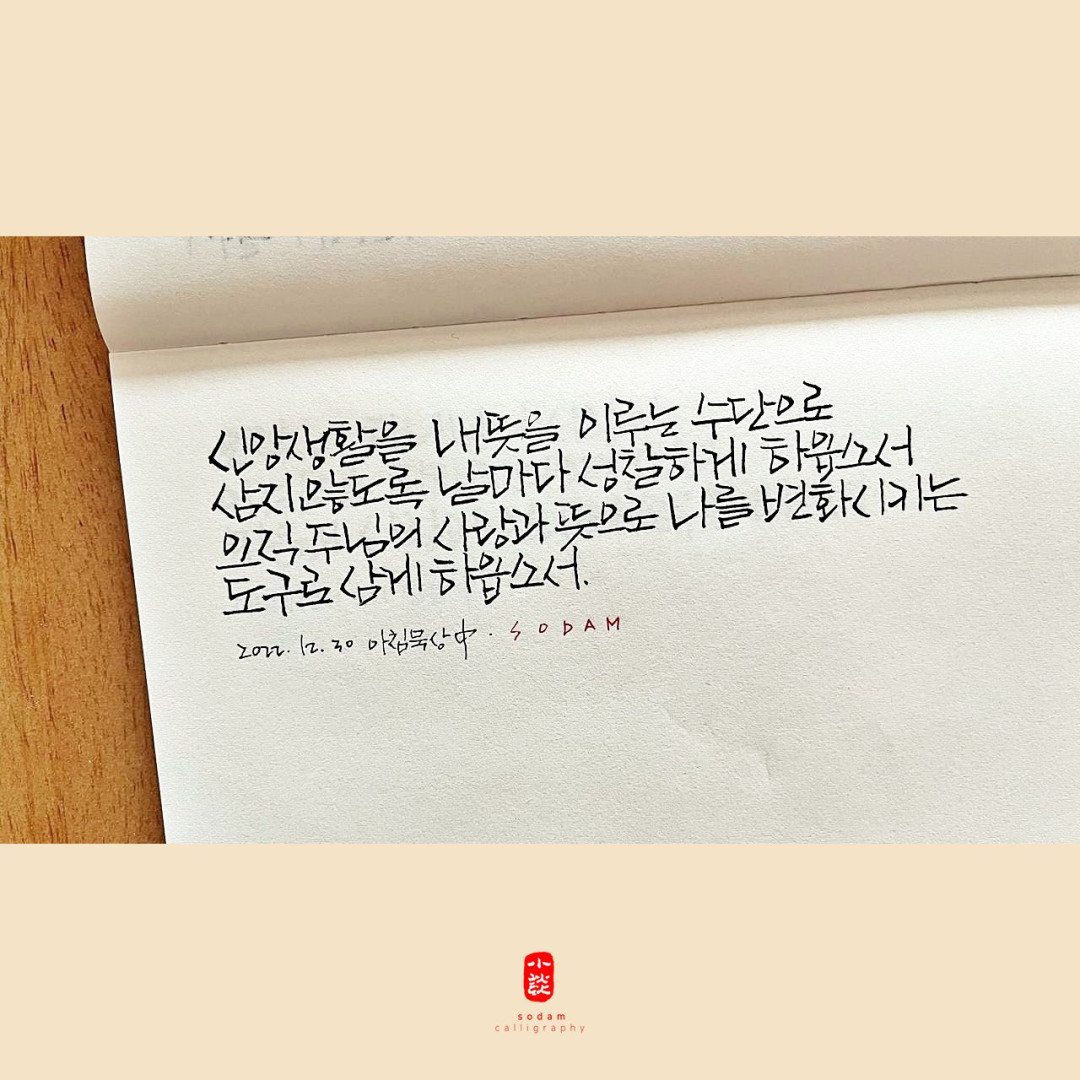 신앙생활을 내뜻을 이루는 수단으로
삼지않도록 날마다 성찰하게 하옵소서
오직 주님의 사랑과 뜻으로 나를 변화시키는
도구로 삼게 하옵소서.
2022. 12. 30 아침묵상中. SODAM
小談
sodam
calligraphy